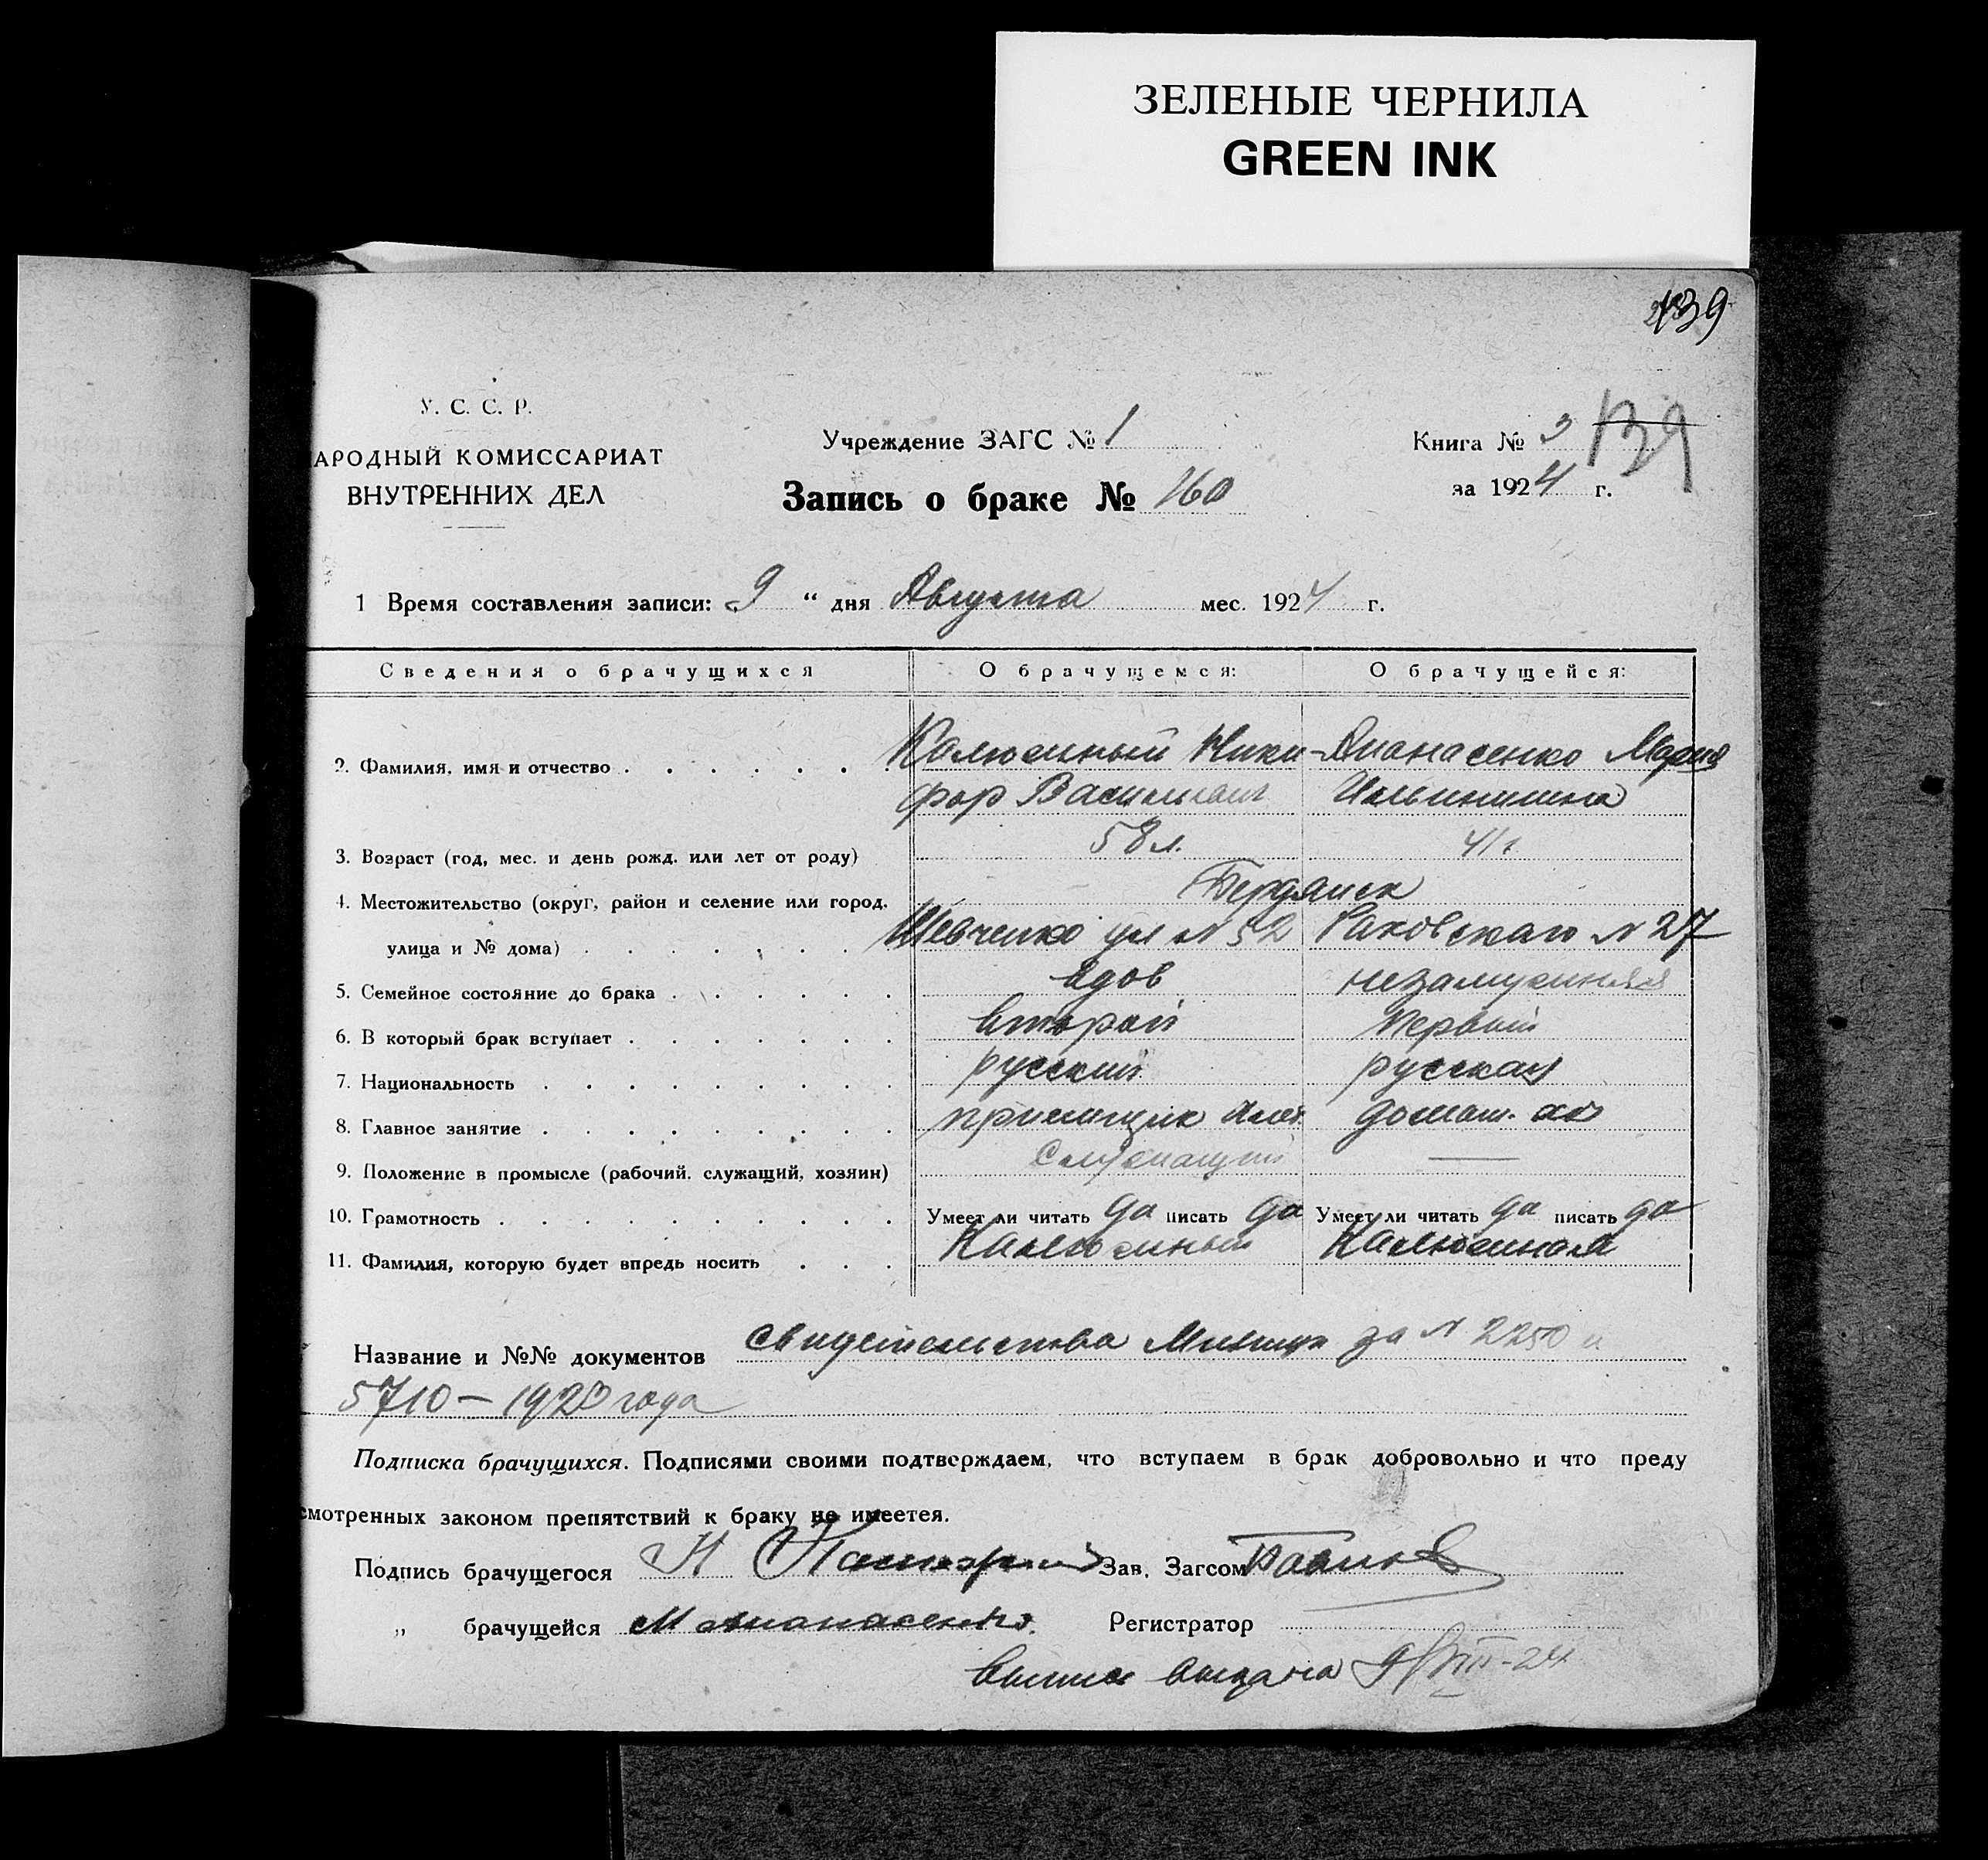 ЗЕЛЕНЫЕ ЧЕРНИЛА
GREEN INK
139
У. С. С. Р.
АРОДНЫЙ КОМИССАРИАТ
ВНУТРЕННИХ ДЕЛ
Учреждение ЗАГС № 1
Запись о браке № 160
Книга № 3 139
за 1924 г.
1 Время составления записи: 9 “ дня Августа мес. 1924 г.
Сведения о брачущихся О брачущемся: О брачущейся:
2. Фамилия, имя и отчество Калюжный Ники- Апанасенко Мария
фор Васильевич Ильинишна
3. Возраст (год, мес. и день рожд. или лет от роду) 58 л. 41 г.
4. Местожительство (округ, район и селение или город, Бердянск
улица и № дома) Шевченко ул N 52 Раковскаго N 27
5. Семейное состояние до брака вдов незамужняя
6. В который брак вступает второй первый
7. Национальность русский русская
8. Главное занятие приемщик домаш. хоз
9. Положение в промысле (рабочий, служащий, хозяин) Служащий —
10. Грамотность Умеет ли читать да писать да Умеет ли читать да писать да
11. Фамилия, которую будет впредь носить Калюжный Калюжная
Название и №№ документов свидетельства Милиции за N 2250 и
5710 — 1923 года
Подписка брачущихся. Подписями своими подтверждаем, что вступаем в брак добровольно и что преду
смотренных законом препятствий к браку не имеется.
Подпись брачущегося Н Зав. Загсом
„ брачущейся М Апанасенко. Регистратор
Выпись выдана 9/VIII-24